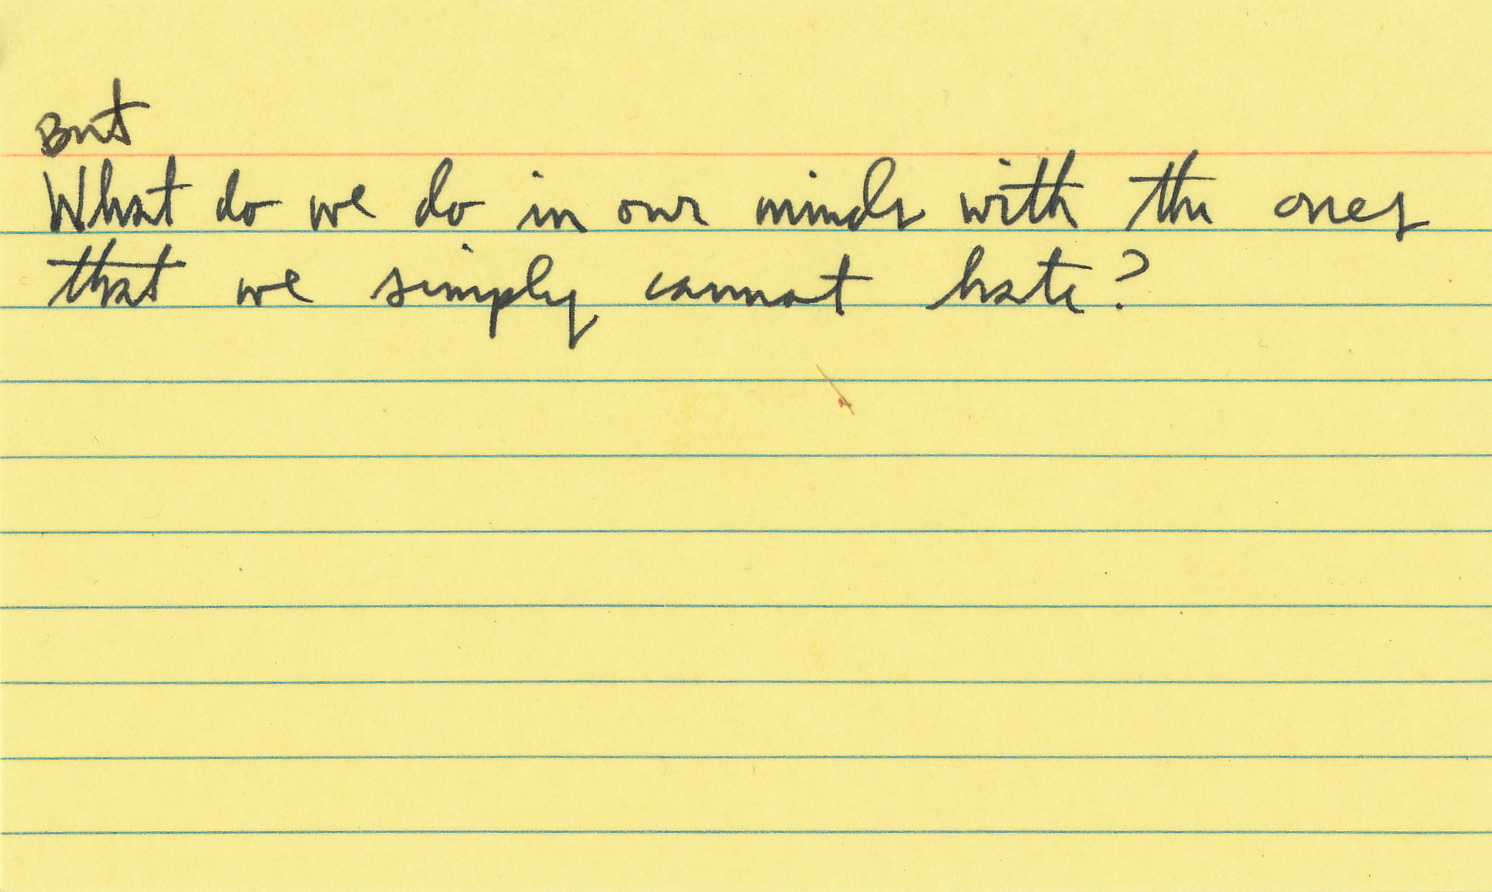 But
What do we do in our minds with the ones
that we simply cannot hate?